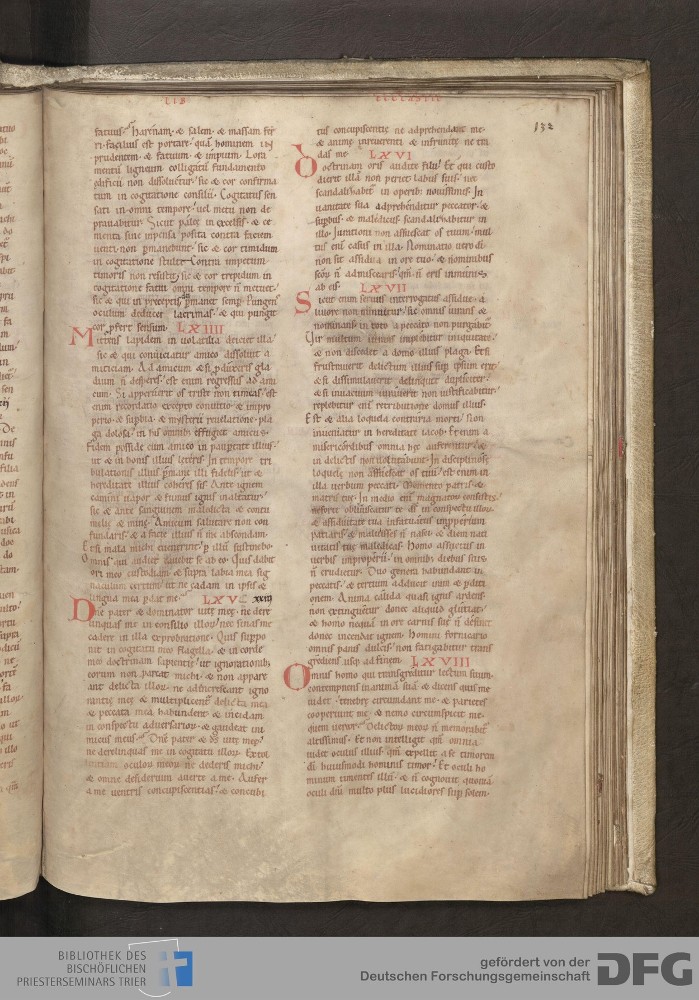 LIB
ECCLASTIC
132
fatuus. Harenam. & salem. & massam fer
ri facilius est portare. quam hominem in
prudentem. & fatuum. & impium. Lora
mentum ligneum colligatum fundamento
edificii non dissoluetur. sic & cor confirma
tum in cogitatione consilii. Cogitatus sen
sati in omni tempore uel metu non de
prauabitur. Sicut palee in excelsis. & ce
menta sine inpensa posita contra faciem
uenti non permanebunt. sic & cor timidum
in cogitatione stulti. Contra impetum
timoris non resistit. sic & cor trepidum in
cogitatione fatui omni tempore non metuet.
sic & qui in preceptis permanet semper. Pungens
oculum deducet lacrimas. & qui pungit
cor profert sensum. LXIIII
Mittens lapidem in uolatilia deiciet illa.
sic & qui conuiciatur amico dissoluit a
miciciam. Ad amicum & si produxeris gla
dium non desperes. est enim regressus ad ami
cum. Si apperuerit os triste non timeas. est
enim recordatio excepto conuitio. & impro
perio. & superbia. & mysterii reuelatione. pla
ga dolosa. in his omnibus effugiet amicus.
Fidem posside cum amico in paupertate illius.
ut & in bonis illius leteris. In tempore tri
bulationis illius permane illi fidelis. ut &
hereditate illius coheres sis. Ante ignem
camini uapor & fumus ignis inaltatur.
sic & ante sanguinem maledicta. & contu
melie & mine. Amicum salutare non con
fundaris. & a facie illius non me abscondam.
Et si mala michi euenerint per illum sustinebo.
Omnis qui audiet cauebit se ab eo. Quis dabit
ori meo custodiam. & supra labia mea sig
naculum certum. ut ne cadam in ipsis. &
lingua mea perdat me. LXV xxiij
Domine pater & dominator uite mee. ne dere
linquas me in consilio illorum. nec sinas me
cadere in illa exprobratione. Quis suppo
nit in cogitatu meo flagella. & in corde
meo doctrinam sapientie. ut ignorationibus
eorum non parcat michi. & non appare
ant delicta illorum. ne adincrescant igno
rantie mee. & multiplicentur delicta mea
& peccata mea habundent. & incidam
in conspectu aduersariorum. & gaudeat ini
micus meus. Domine pater & deus uite mee.
ne derelinquas me in cogitatu illorum. Extol
lentiam oculorum meorum ne dederis michi.
& omne desiderium auerte a me. Aufer
a me uentris concupiscentias. & concubi
tus concupiscentie ne adprehendant me.
& anime inreuerenti & infrunite ne tra
das me. LXVI
Doctrinam oris audite filii. Et qui custo
dierit illam non periet labiis suis. nec
scandalizabitur in operibus nouissimis. In
uanitate sua adprehenditur peccator. &
superbus. & maledicus scandalizabitur in
illo. Iurationi non assuescat os tuum. mul
tus enim casus in illa. Nominatio uero dei
non sit assidua in ore tuo. & nominibus
sanctorum non admiscearis. quoniam non eris inmunis
ab eis. LXVII
Sicut enim seruus interrogatus assidue. a
liuore non minuitur. sic omnis iurans &
nominans in toto a peccato non purgabitur.
Uir multum iurans implebitur iniquitate.
& non discedet a domo illius plaga. Et si
frustrauerit delictum illius super ipsum erit.
& si dissimulauerit delinquet dupliciter.
& si inuacuum iurauerit non iustificabitur.
replebitur enim retributione domus illius.
Est & alia loquela contraria morti. non
inueniatur in hereditate iacob. Etenim a
misericordibus omnia hec auferentur. &
in delictis non uolutabunt. Indisciplinose
loquele non assuescat os tuum. est enim in
illa uerbum peccati. Memento patris &
matris tue. In medio enim magnatorum consistis.
ne forte obliuiscatur te deus in conspectu illorum.
& assiduitate tua infatuatus improperium
patiaris. & maluisses non nasci. & diem nati
uitatis tue maledicas. Homo assuetus in
uerbis improperii. in omnibus diebus suis
non erudietur. Duo genera habundant in
peccatis. & tertium adducit iram & perditi
onem. Anima calida quasi ignis ardens.
non extinguetur donec aliquid glutiat.
& homo nequam in ore carnis sue non desinet
donec incendat ignem. Homini fornicario
omnis panis dulcis. non fatigabitur trans
grediens usque ad finem. LXVIII
Omnis homo qui transgreditur lectum suum.
contempnens in animam suam & dicens quis me
uidet. tenebre circumdant me. & parietes
cooperiunt me. & nemo circumspicit me.
quem uereor. Delictorum meorum non memorabitur
altissimus. Et non intelligit quoniam omnia
uidet oculus illius. quoniam expellit a se timorem
dei huiusmodi hominis timor. Et oculi ho
minum timentes illum. & non cognouit quoniam
oculi domini multo plus lucidiores super solem.
BIBLIOTHEK DES
BISCHÖFLICHEN
PRIESTERSEMINARS TRIER
gefördert von der
Deutschen Forschungsgemeinschaft
DFG